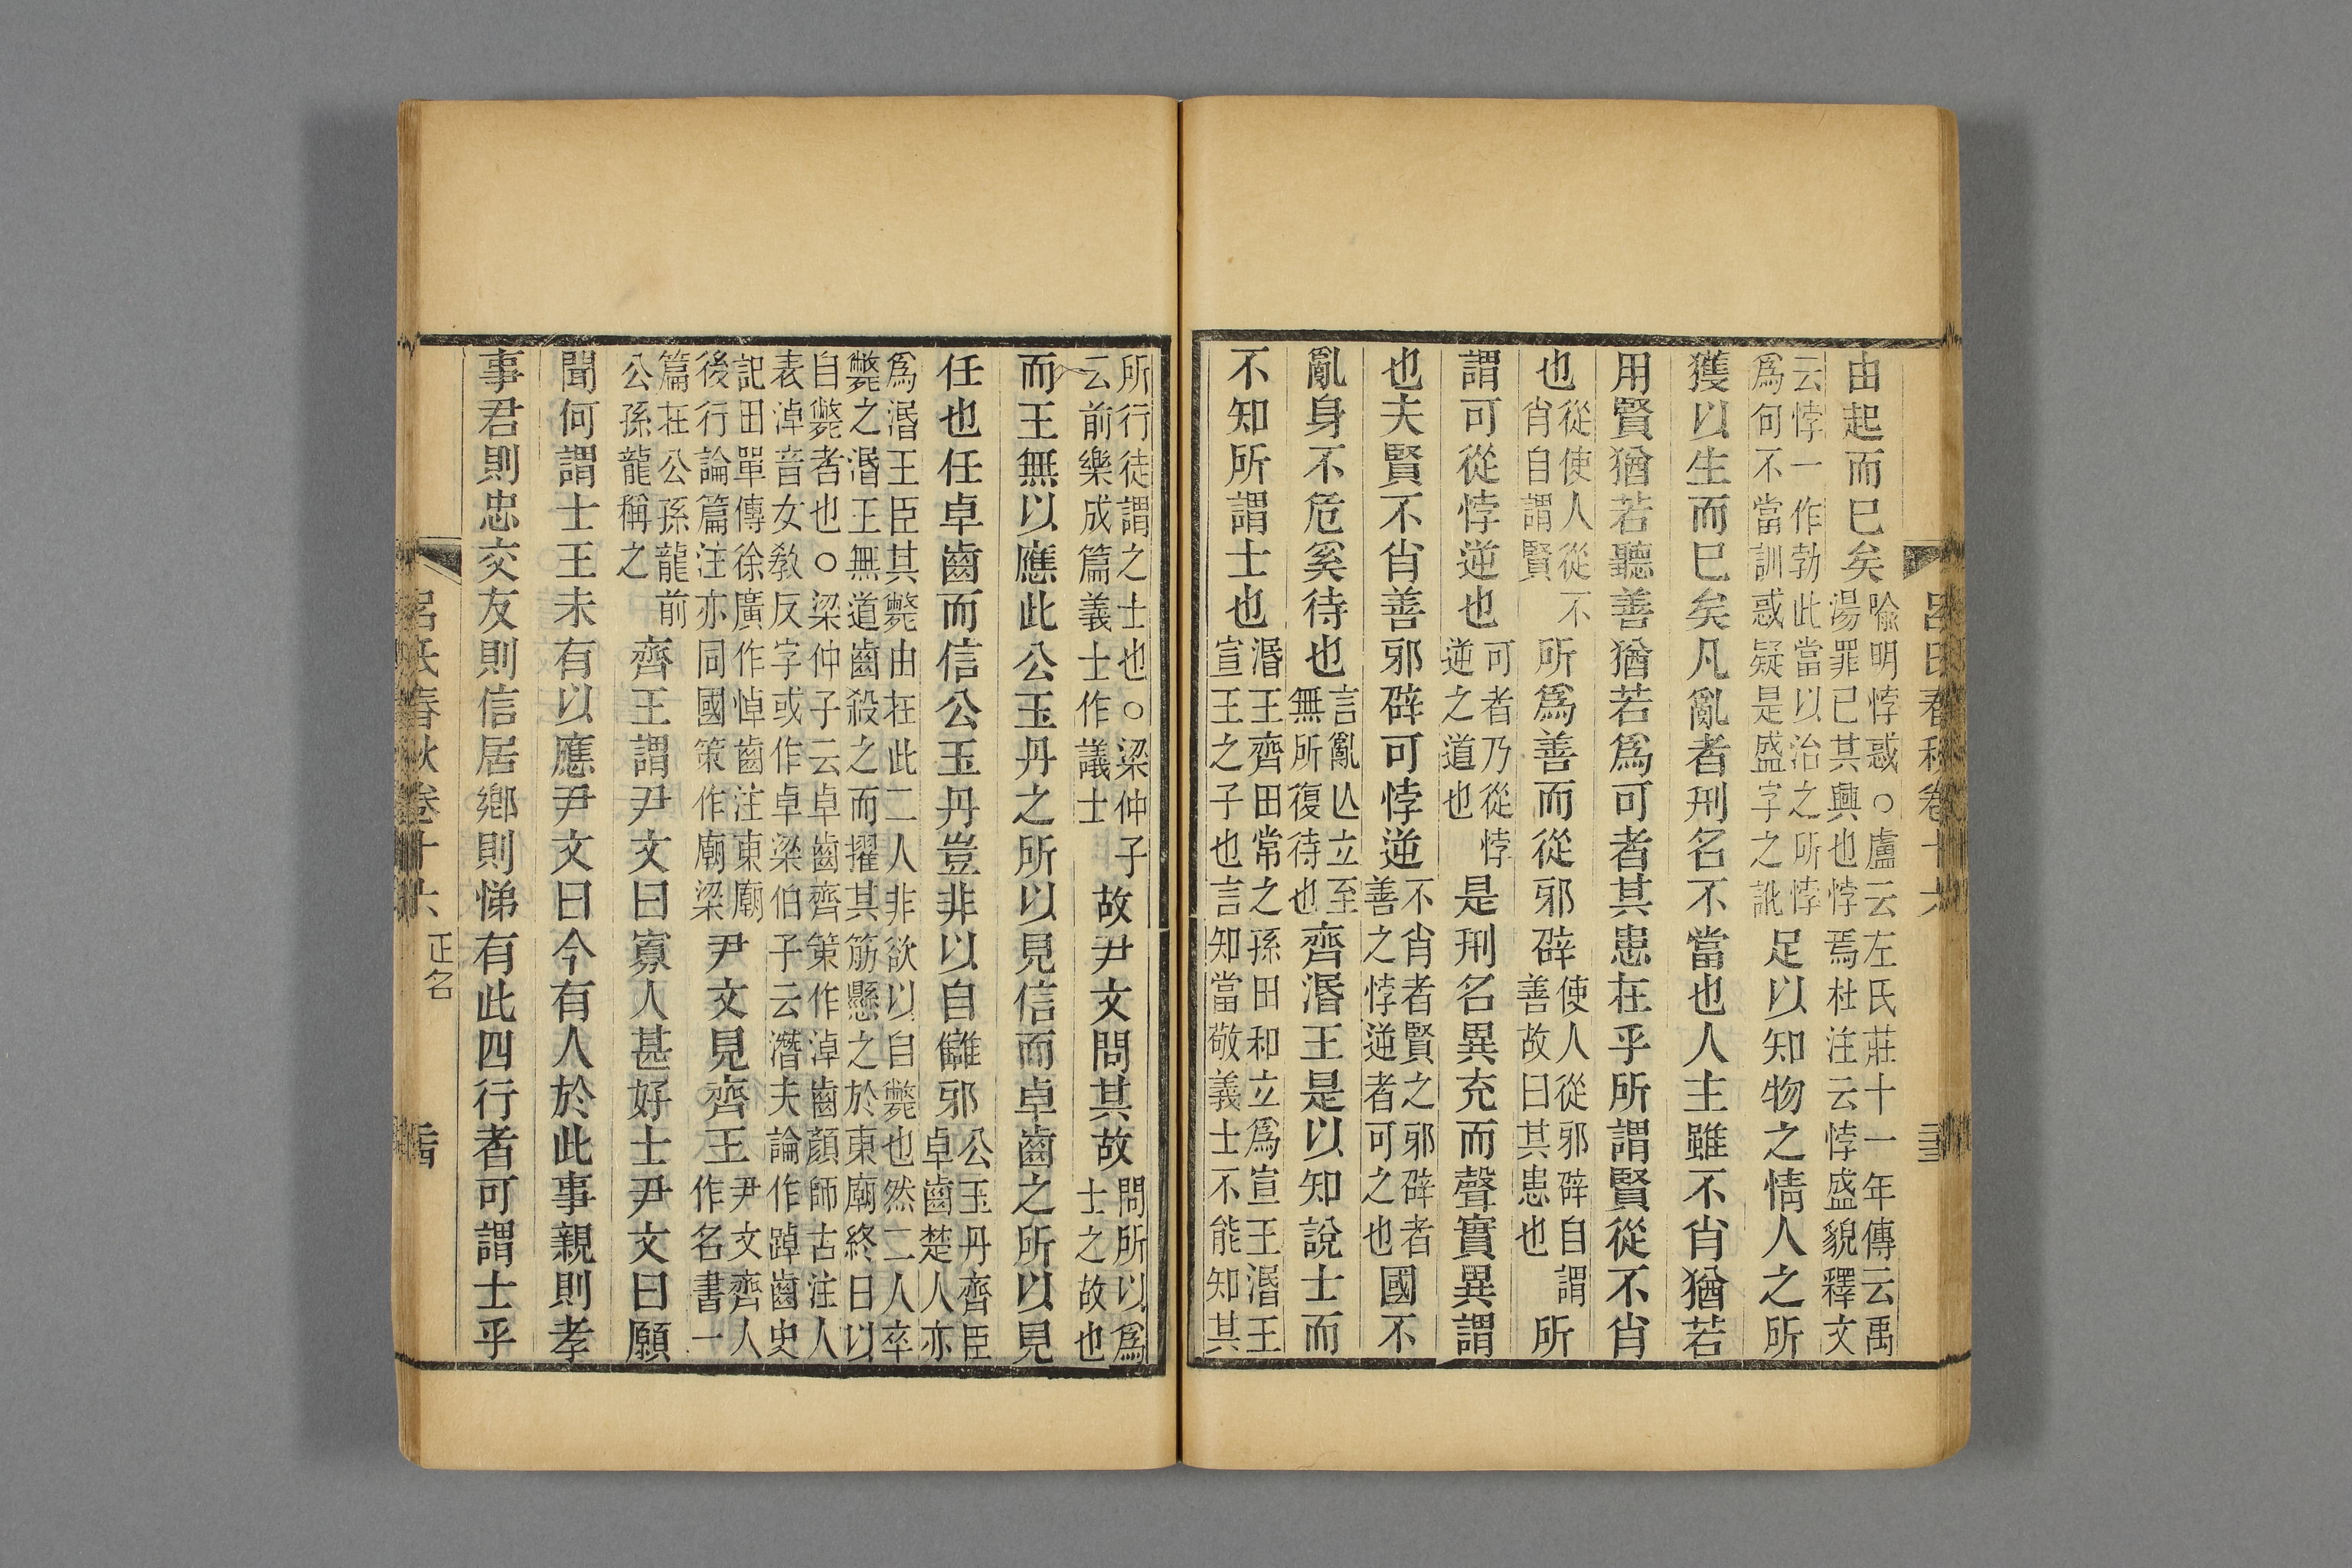 由起而巳矣喻明悖惑○盧云左氏莊十一年傳云禹湯罪已其興也悖焉杜注云悖盛貌釋文
云悖一作勃此當以治之所悖爲句不當訓惑疑是盛字之訛足以知物之情人之所
獲以生而巳矣凡亂者刑名不當也人主雖不肖猶若
用賢猶若聽善猶若爲可者其患在乎所謂賢從不肖
也從使人從不肖自謂賢所爲善而從邪辟使人從邪辟自謂善故曰其患也所
謂可從悖逆也可者乃從悖逆之道也是刑名異充而聲實異謂
也夫賢不肖善邪辟可悖逆不肖者賢之邪辟者善之悖逆者可之也國不
亂身不危奚待也言亂亾立至無所復待也齊湣王是以知說士而
不知所謂士也湣王齊田常之孫田和立爲宣王湣王宣王之子也言知當敬義士不能知其
所行徒謂之士也○梁仲子云前樂成篇義士作議士故尹文問其故問所以爲士之故也
而王無以應此公玉丹之所以見信而卓齒之所以見
任也任卓齒而信公玉丹豈非以自讎邪公玉丹齊臣卓齒楚人亦
爲湣王臣其斃由在此二人非欲以自斃也然二人卒斃之湣王無道齒殺之而擢其筋懸之於東廟終日以
自斃者也○梁仲子云卓齒齊策作淖齒顏師古注人表淖音女敎反字或作卓梁伯子云潛夫論作踔齒史
記田單傳徐廣作悼齒注東廟後行論篇注亦同國策作廟梁尹文見齊王尹文齊人作名書一
篇在公孫龍前公孫龍稱之齊王謂尹文曰寡人甚好士尹文曰願
聞何謂士王未有以應尹文曰今有人於此事親則孝
事君則忠交友則信居鄉則悌有此四行者可謂士乎
呂氏春秋卷十六 正名